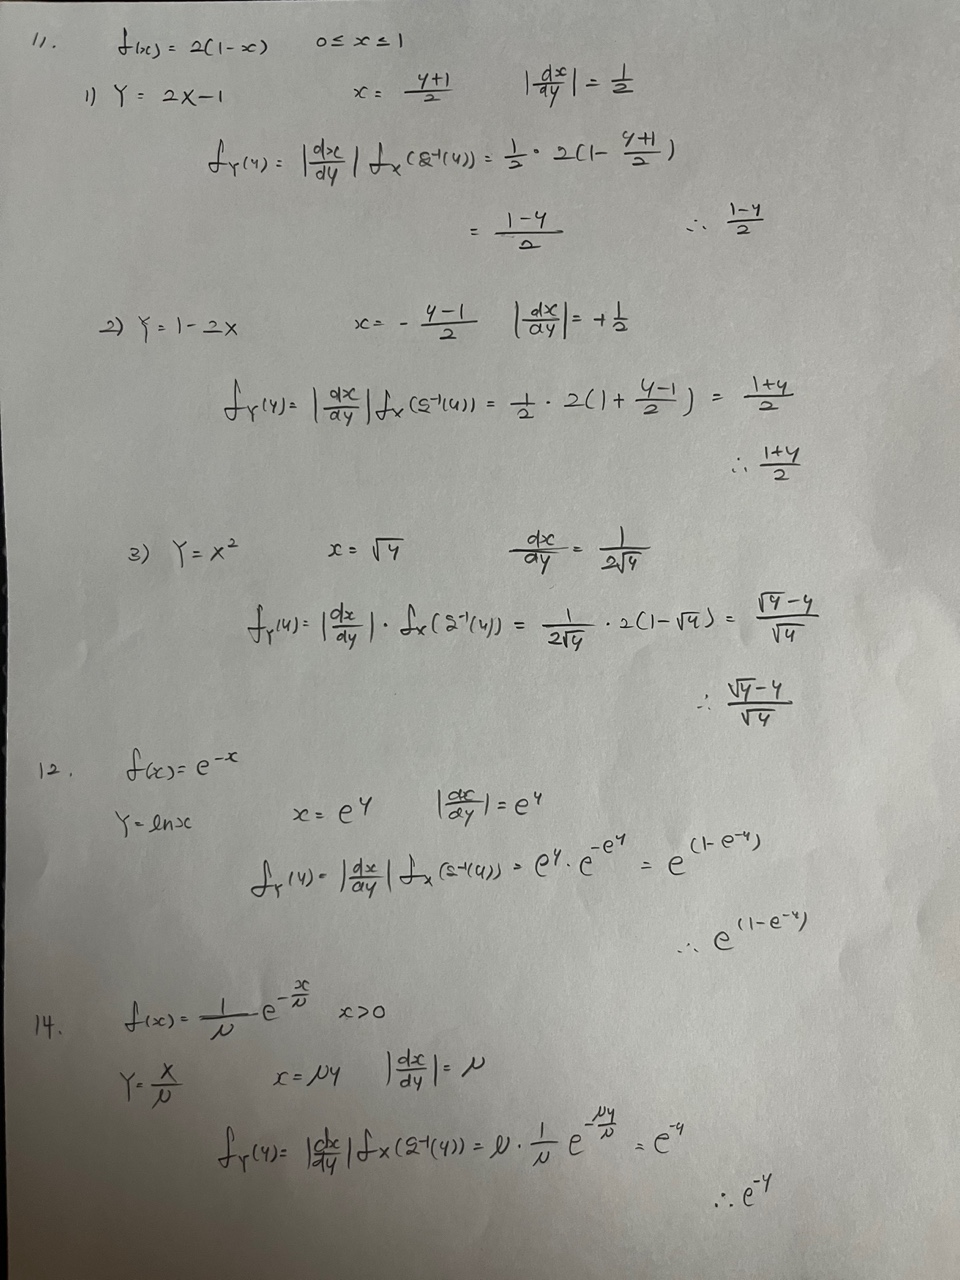 11. f(x) = 2(1-x) 0 ≤ x ≤ 1
1) Y = 2X-1 x = (y+1)/2 |dx/dy| = 1/2
f_Y(y) = |dx/dy| f_X(g⁻¹(y)) = 1/2 · 2(1 - (y+1)/2)
= (1-y)/2 ∴ (1-y)/2
2) Y = 1-2X x = -(y-1)/2 |dx/dy| = +1/2
f_Y(y) = |dx/dy| f_X(g⁻¹(y)) = 1/2 · 2(1 + (y-1)/2) = (1+y)/2
∴ (1+y)/2
3) Y = X² x = √y dx/dy = 1/(2√y)
f_Y(y) = |dx/dy| · f_X(g⁻¹(y)) = 1/(2√y) · 2(1-√y) = (√y-y)/√y
∴ (√y-y)/√y
12. f(x) = e^(-x)
Y = lnx x = e^y |dx/dy| = e^y
f_Y(y) = |dx/dy| f_X(g⁻¹(y)) = e^y · e^(-e^y) = e^(1-e^(-y))
∴ e^(1-e^(-y))
14. f(x) = 1/μ e^(-x/μ) x>0
Y = X/μ x = μy |dx/dy| = μ
f_Y(y) = |dx/dy| f_X(g⁻¹(y)) = μ · 1/μ e^(-μy/μ) = e^(-y)
∴ e^(-y)